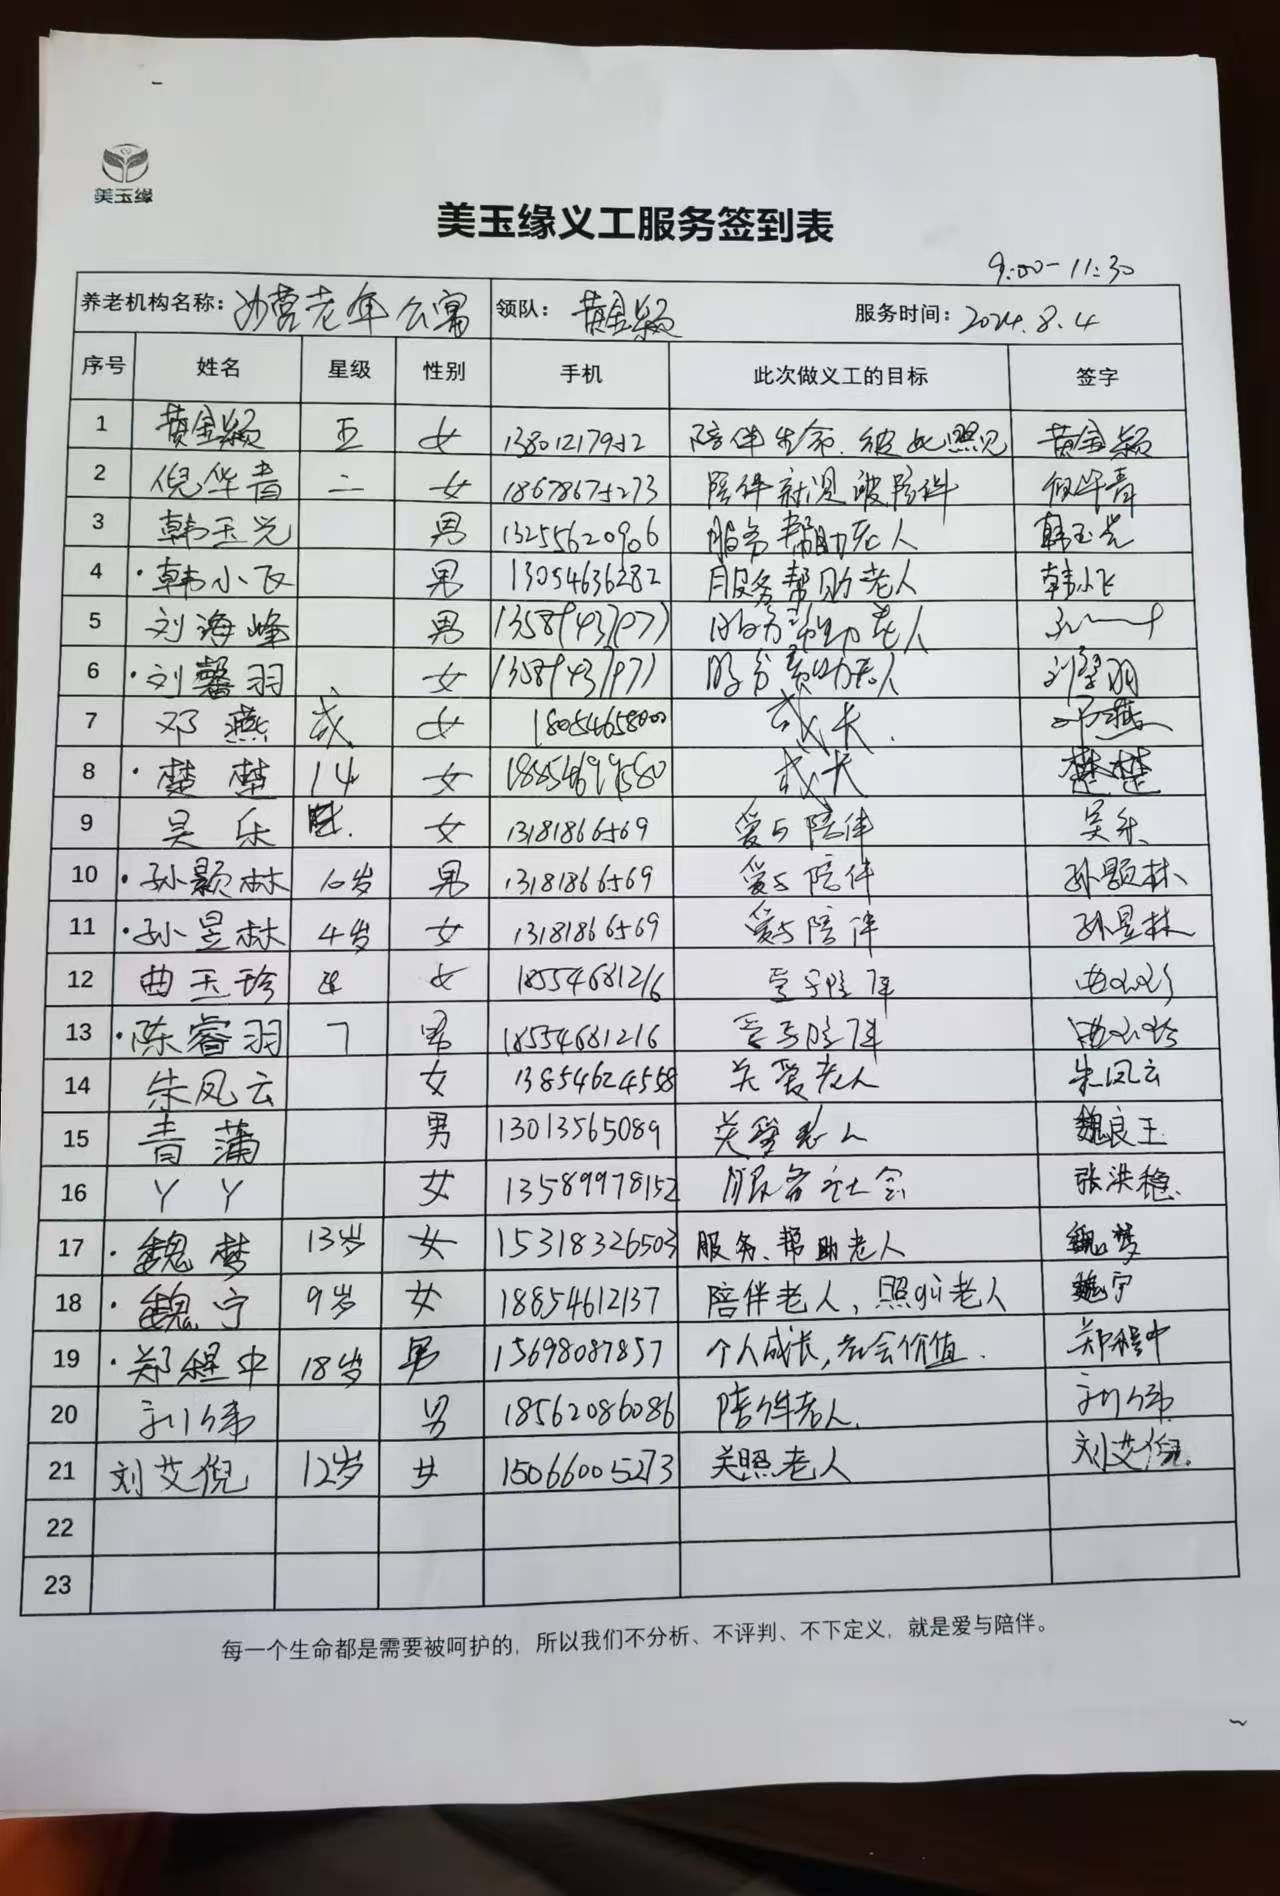 美玉缘
美玉缘义工服务签到表
9:00-11:30
养老机构名称: 沙营老年公寓 领队: 黄金颖 服务时间: 2024.8.4
序号 姓名 星级 性别 手机 此次做义工的目标 签字
1 黄金颖 五 女 13801217952 陪伴生命.彼此照见 黄金颖
2 倪华青 二 女 18678675273 陪伴就是被陪伴 倪华青
3 韩玉光 男 13255620906 服务帮助老人 韩玉光
4 ·韩小飞 男 13054636282 服务帮助老人 韩小飞
5 刘海峰 男 13589437977 服务帮助老人
6 ·刘馨羽 女 13589437977 服务帮助老人 刘馨羽
7 邓燕 成 女 18054658000 成长. 邓燕
8 ·楚楚 14 女 18854699580 成长 楚楚
9 吴乐 女 13181866569 爱与陪伴 吴乐
10 ·孙颢林 10岁 男 13181866569 爱与陪伴 孙颢林
11 ·孙昱林 4岁 女 13181866569 爱与陪伴 孙昱林
12 曲玉珍 女 18554681216 爱与陪伴 曲玉珍
13 ·陈睿羽 7 男 18554681216 爱与陪伴 曲玉珍
14 朱凤云 女 13854624558 关爱老人 朱凤云
15 青蒲 男 13013565089 关爱老人 魏良玉
16 丫丫 女 13589978152 服务社会 张洪稳
17 ·魏梦 13岁 女 15318326503 服务、帮助老人 魏梦
18 ·魏宁 9岁 女 18854612137 陪伴老人, 照gù老人 魏宁
19 ·郑程中 18岁 男 15698087857 个人成长, 社会价值. 郑程中
20 刘伟 男 18562086086 陪伴老人. 刘伟
21 刘艾倪 12岁 女 15066005273 关照老人 刘艾倪.
22
23
每一个生命都是需要被呵护的，所以我们不分析、不评判、不下定义，就是爱与陪伴。